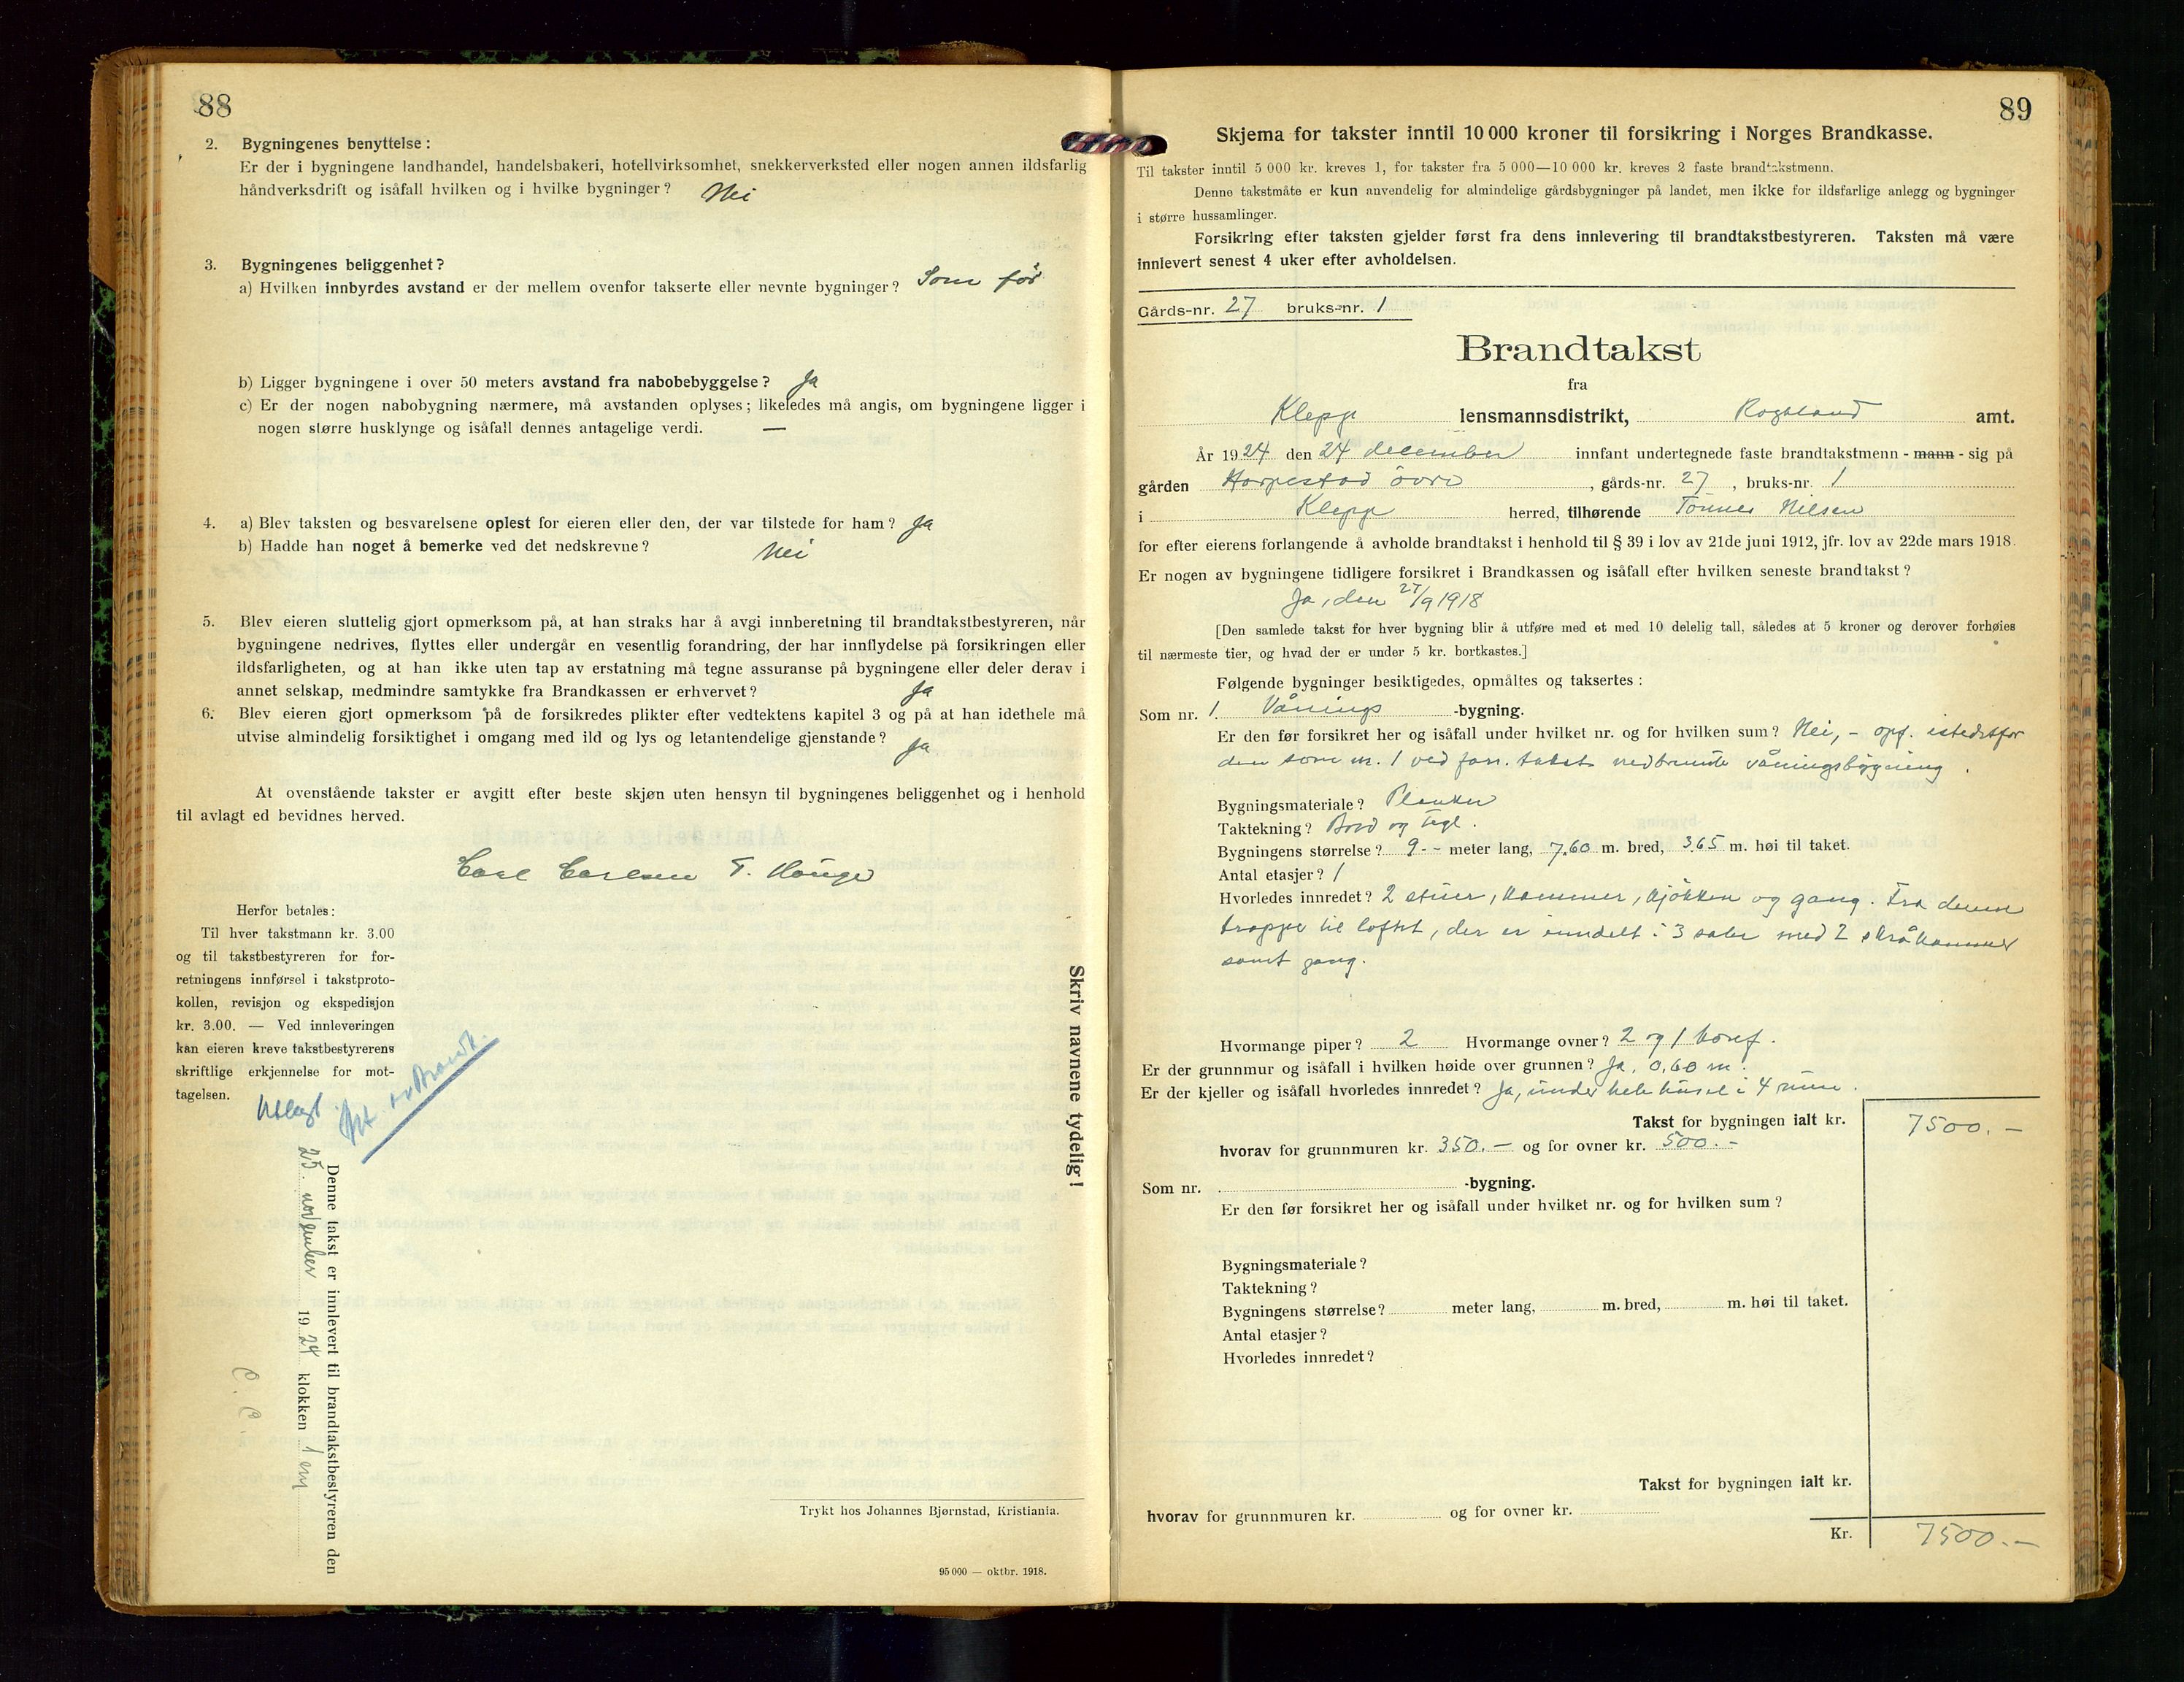 88
2. Bygningenes benyttelse :
Er der i bygningene landhandel, handelsbakeri, hotellvirksomhet, snekkerverksted eller nogen annen ildsfarlig
håndverksdrift og isåfall hvilken og i hvilke bygninger ? Nei
3. Bygningenes beliggenhet ?
a) Hvilken innbyrdes avstand er der mellem ovenfor takserte eller nevnte bygninger ? Som før
b) Ligger bygningene i over 50 meters avstand fra nabobebyggelse ? Ja
c) Er der nogen nabobygning nærmere, må avstanden oplyses ; likeledes må angis, om bygningene ligger i
nogen større husklynge og isåfall dennes antagelige verdi. —
4. a) Blev taksten og besvarelsene oplest for eieren eller den, der var tilstede for ham ? Ja
b) Hadde han noget å bemerke ved det nedskrevne ? Nei
5. Blev eieren sluttelig gjort opmerksom på, at han straks har å avgi innberetning til brandtakstbestyreren, når
bygningene nedrives, flyttes eller undergår en vesentlig forandring, der har innflydelse på forsikringen eller
ildsfarligheten, og at han ikke uten tap av erstatning må tegne assuranse på bygningene eller deler derav i
annet selskap, medmindre samtykke fra Brandkassen er erhvervet ? Ja
6. Blev eieren gjort opmerksom på de forsikredes plikter efter vedtektens kapitel 3 og på at han idethele må
utvise almindelig forsiktighet i omgang med ild og lys og letantendelige gjenstande ? Ja
At ovenstående takster er avgitt efter beste skjøn uten hensyn til bygningenes beliggenhet og i henhold
til avlagt ed bevidnes herved.
Carl Carlsen T. Hauge
Herfor betales :
Til hver takstmann kr. 3.00
og til takstbestyreren for for-
retningens innførsel i takstproto-
kollen, revisjon og ekspedisjon
kr. 3.00. — Ved innleveringen
kan eieren kreve takstbestyrerens
skriftlige erkjennelse for mot-
tagelsen.
Denne takst er innlevert til brandtakstbestyreren den
25. november 1924 klokken 1 em
C. C.
Skriv navnene tydelig !
Trykt hos Johannes Bjørnstad, Kristiania.
95 000 — oktbr. 1918.
89
Skjema for takster inntil 10 000 kroner til forsikring i Norges Brandkasse.
Til takster inntil 5 000 kr. kreves 1, for takster fra 5 000—10 000 kr. kreves 2 faste brandtakstmenn.
Denne takstmåte er kun anvendelig for almindelige gårdsbygninger på landet, men ikke for ildsfarlige anlegg og bygninger
i større hussamlinger.
Forsikring efter taksten gjelder først fra dens innlevering til brandtakstbestyreren. Taksten må være
innlevert senest 4 uker efter avholdelsen.
Gårds-nr. 27 bruks-nr. 1
Brandtakst
fra
Klepp lensmannsdistrikt, Rogaland amt.
År 1924 den 24 december innfant undertegnede faste brandtakstmenn - mann - sig på
gården Harpestad övre , gårds-nr. 27 , bruks-nr. 1
i Klepp herred, tilhørende Tönnes Nilsen
for efter eierens forlangende å avholde brandtakst i henhold til § 39 i lov av 21de juni 1912, jfr. lov av 22de mars 1918.
Er nogen av bygningene tidligere forsikret i Brandkassen og isåfall efter hvilken seneste brandtakst ?
Ja, den 27/9 1918
[Den samlede takst for hver bygning blir å utføre med et med 10 delelig tall, således at 5 kroner og derover forhøies
til nærmeste tier, og hvad der er under 5 kr. bortkastes.]
Følgende bygninger besiktigedes, opmåltes og taksertes :
Som nr. 1. Vånings -bygning.
Er den før forsikret her og isåfall under hvilket nr. og for hvilken sum ? Nei, - opf. istedetfor
den som nr. 1 ved forr. takst nedbrendte våningsbygning .
Bygningsmateriale ? Planker
Taktekning ? Bord og tegl .
Bygningens størrelse ? 9 - - meter lang, 7.60 m. bred, 3.65 m. høi til taket.
Antal etasjer ? 1
Hvorledes innredet ? 2 stuer, kammer, kjøkken og gang. Fra denne
trappe til loftet, der er inndelt i 3 saler med 2 skråkammer
samt gang.
Hvormange piper ? 2 Hvormange ovner ? 2 og 1 komf .
Er der grunnmur og isåfall i hvilken høide over grunnen ? Ja, 0,60 m .
Er der kjeller og isåfall hvorledes innredet ? Ja, under hele huset i 4 rum .
Takst for bygningen ialt kr. 7500. —
hvorav for grunnmuren kr. 350. — og for ovner kr. 500. —
Som nr. -bygning.
Er den før forsikret her og isåfall under hvilket nr. og for hvilken sum ?
Bygningsmateriale ?
Taktekning ?
Bygningens størrelse ? meter lang, m. bred, m. høi til taket.
Antal etasjer ?
Hvorledes innredet ?
Takst for bygningen ialt kr.
hvorav for grunnmuren kr. og for ovner kr.
Kr. 7500. —